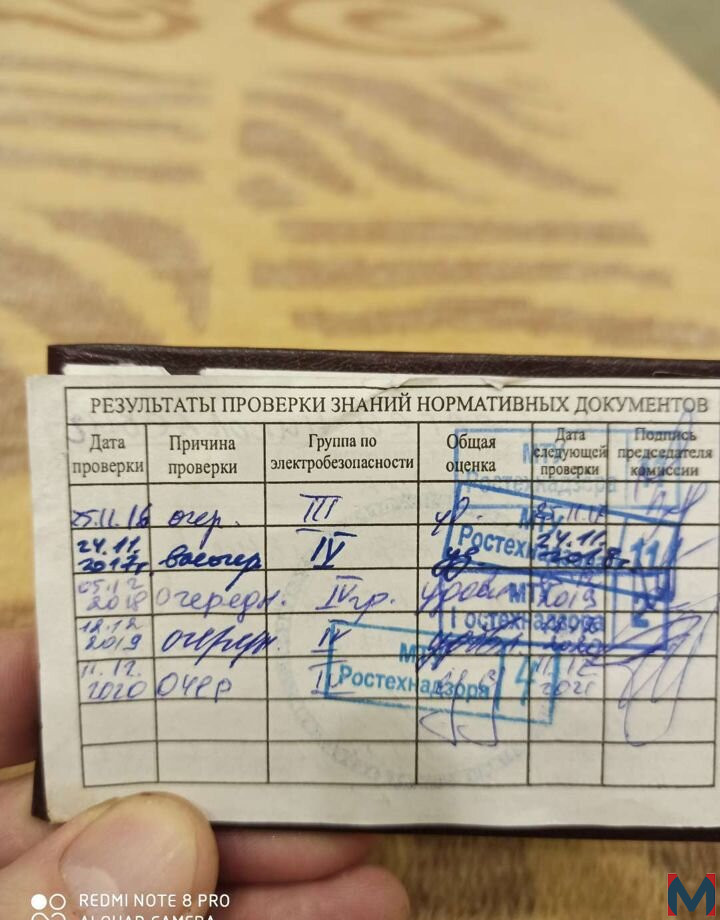 РЕЗУЛЬТАТЫ ПРОВЕРКИ ЗНАНИЙ НОРМАТИВНЫХ ДОКУМЕНТОВ
Дата проверки Причина проверки Группа по электробезопасности Общая оценка Дата следующей проверки Подпись председателя комиссии
25.11.16 очер. III уд.
24.11. 2017г внеочер IV уд. 24.11. 2018г
05.12 2018 Очередн. IV гр. 2019
2019 очередн. IV
11.12. 2020 ОЧЕР 2021
МТУ Ростехнадзора
Ростехнадзора 11
Ростехнадзора 2
Ростехнадзора 4
REDMI NOTE 8 PRO
AI QUAD CAMERA
M